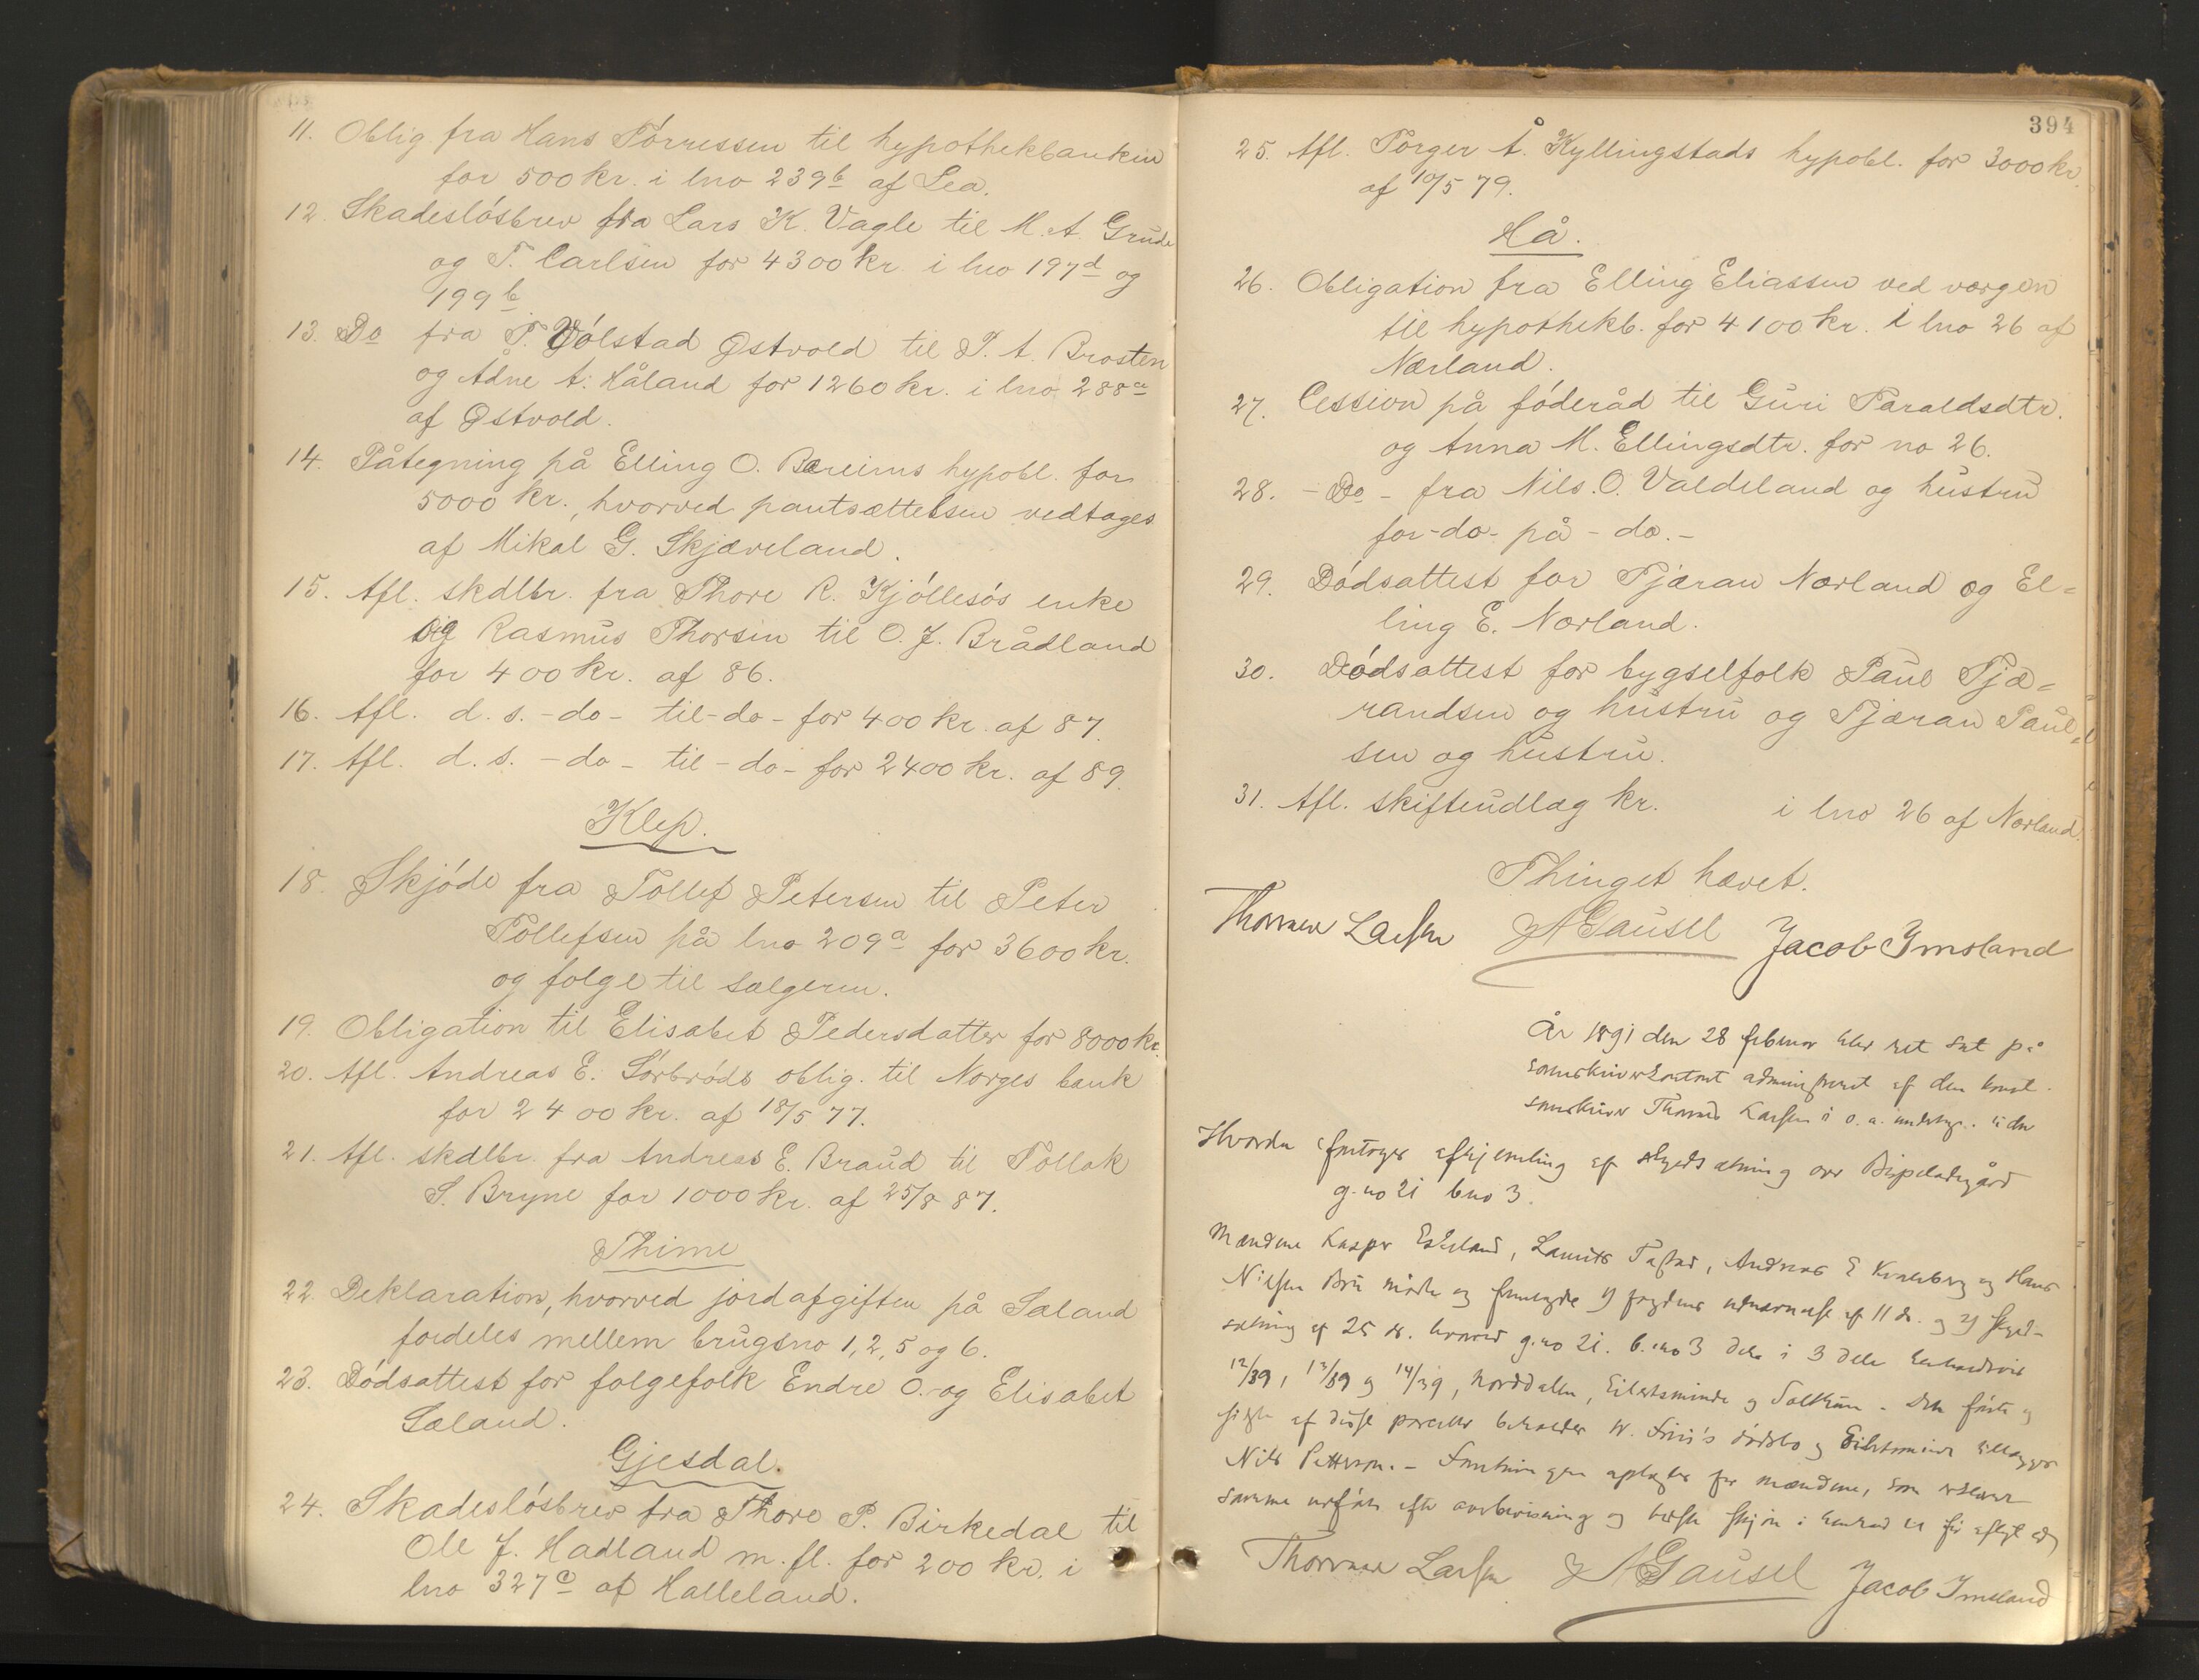 11. Oblig fra Hans Tórressen til hypothekbanken
for 500 kr. i lno 239b af Lea.
12. Skadeslósbrev fra Lars K. Vagle til M. A. Grude
og T. Carlsen for 4300 kr i lno 197d og
199b
13. Do fra T. Vólstad Østvold til P. A. Brosten
og Ådne A. Håland for 1260 kr. i lno 288a
af Østvold.
14. Påtegning på Elling O. Bæreims hypobl. for
5000 kr., hvorved pantsættelsen vedtages
af Mikal G. Skjæveland.
15. Afl. skdlbr. fra Thore R. Kjóllesós enke
og Rasmus Thorsen til O. J. Brådland
for 400 kr. af 86.
16. Afl. d. s. - do - til - do - for 400 kr. af 87.
17. Afl. d. s. - do - til - do - for 2400 kr. af 89.
Klep.
18. Skjóde fra Tollef Petersen til Peter
Tollefsen på lno 209a for 3600 kr.
og folge til sælgeren.
19. Obligation til Elisabet Pedersdatter for 8000 kr.
20. Afl. Andreas E. Sórbróds oblig. til Norges bank
for 2400 kr. af 18/5 77.
21. Afl. skdlbr. fra Andreas E. Braud til Tollak
S. Bryne for 1000 kr. af 25/8 87.
Thime
22. Deklaration, hvorved jordafgiften på Sæland
fordeles mellem brugsno 1, 2, 5 og 6.
23. Dódsattest for folgefolk Endre O. og Elisabet
Sæland.
Gjesdal.
24. Skadeslósbrev fra Thore P. Birkedal til
Ole J. Hadland m. fl. for 200 kr. i
lno 327c af Halleland.
394
25. Afl. Torger Å. Kyllingstads hypobl. for 3000 kr.
af 10/5 79.
Hå.
26. Obligation fra Elling Eliassen ved værgen
til hypothekb. for 4100 kr. i lno 26 af
Nærland.
27. Cession på fóderåd til Guri Taraldsdtr.
og Anna M. Ellingsdtr. for no 26.
28. - Do - fra Nils. O. Valdeland og hustru
for - do - på - do. -
29. Dódsattest for Tjæran Nærland og El=
ling E. Nærland.
30. Dódsattest for bygselfolk Paul Tjæ=
randsen og hustru og Tjæran Paul=
sen og hustru.
31. Afl. skifteudlæg kr. i lno 26 af Nærland.
Thinget hævet.
Thorvald Larsen A Gausel Jacob Imsland
År 1891 den 28 februar blev ret sat på
sorenskriverkontoret administreret af den konst.
sorenskriver Larsen i o. a. undertegn. vidner
Hvorda foretoges afhjemling af skyldsætning over Bispeladegård
g. no 21 b no 3.
Mændene Kasper Eskeland, Laurits Tastad, Andreas E Kvaleberg og Hans
Nilsen Bru mødte og fremlagde fogdens udnævnelse af 11 ds. og skyld-
sætning af 25 ds. hvorved g. no 21. b. no 3 deles i 3 dele
12/39, 13/39 og 14/39, Norddalen, Eilertsminde og Solthun. - Den første og
sidste af disse parceller beholder W. dødsbo og Eilertsminde tillægges
Nils Petterson. - Forretningen oplæstes for mændene, som
samme udført efter overbevisning og bedste skjøn
Thorvald Larsen A Gausel Jacob Imsland